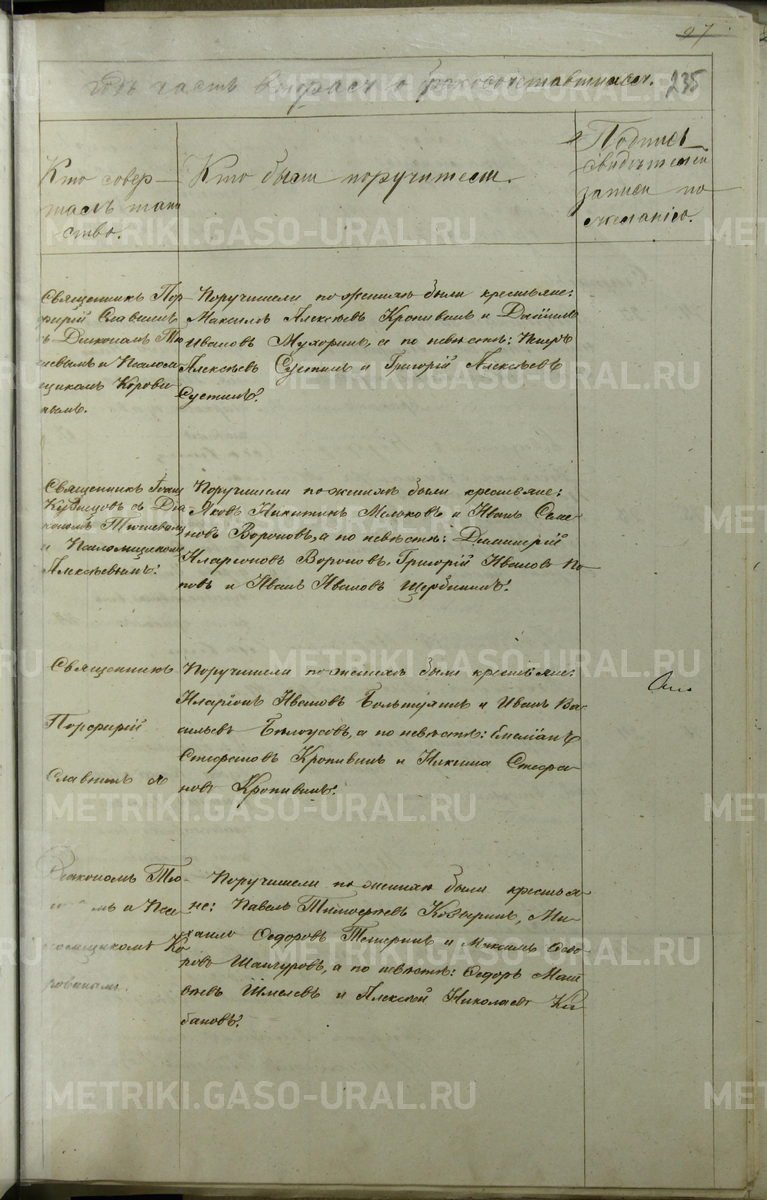 27
годъ часть вторая о бракосочетавшихся. 235
Кто совер-
шалъ таин
ство.
Кто были поручители.
Подпись
свидѣтелей
записи по
желанію.
Священникъ Пор
фирій Славнинъ
съ Діакономъ Тю
шевымъ и Псалом
щикомъ Корови
нымъ.
Поручители по женихѣ были крестьяне:
Максимъ Алексѣевъ Кропивинъ и Даніилъ
Ивановъ Мухоринъ, а по невѣстѣ: Петръ
Алексѣевъ Сустинъ и Григорій Алексѣевъ
Сустинъ.
Священникъ Іоаннъ
Кузнецовъ съ Діа
кономъ Тюшевымъ
и Псаломщикомъ
Алексѣевымъ.
Поручители по женихѣ были крестьяне:
Яковъ Никитинъ Мельковъ и Иванъ Семе
новъ Вороновъ, а по невѣстѣ: Димитрій
Иларіоновъ Вороновъ, Григорій Ивановъ По
повъ и Иванъ Ивановъ Щербининъ.
Священникъ
Порфирій
Славнинъ съ
Поручители по женихѣ были крестьяне:
Иларіонъ Ивановъ Болтухинъ и Иванъ Ва
сильевъ Бѣлоусовъ, а по невѣстѣ: Емеліанъ
Стефановъ Кропивинъ и Никита Стефа
новъ Кропивинъ.
Діакономъ Тю-
шевымъ и Пса
ломщикомъ Ко
ровинымъ.
Поручители по женихѣ были крестья
не: Павелъ Тимофеевъ Кожеринъ, Ми
хаилъ Ѳедоровъ Тетеринъ и Михаилъ Ѳедо
ровъ Шангуровъ, а по невѣстѣ: Ѳедоръ Мат
вѣевъ Шмелевъ и Алексѣй Николаевъ Ка
бановъ.
METRIKI.GASO-URAL.RU